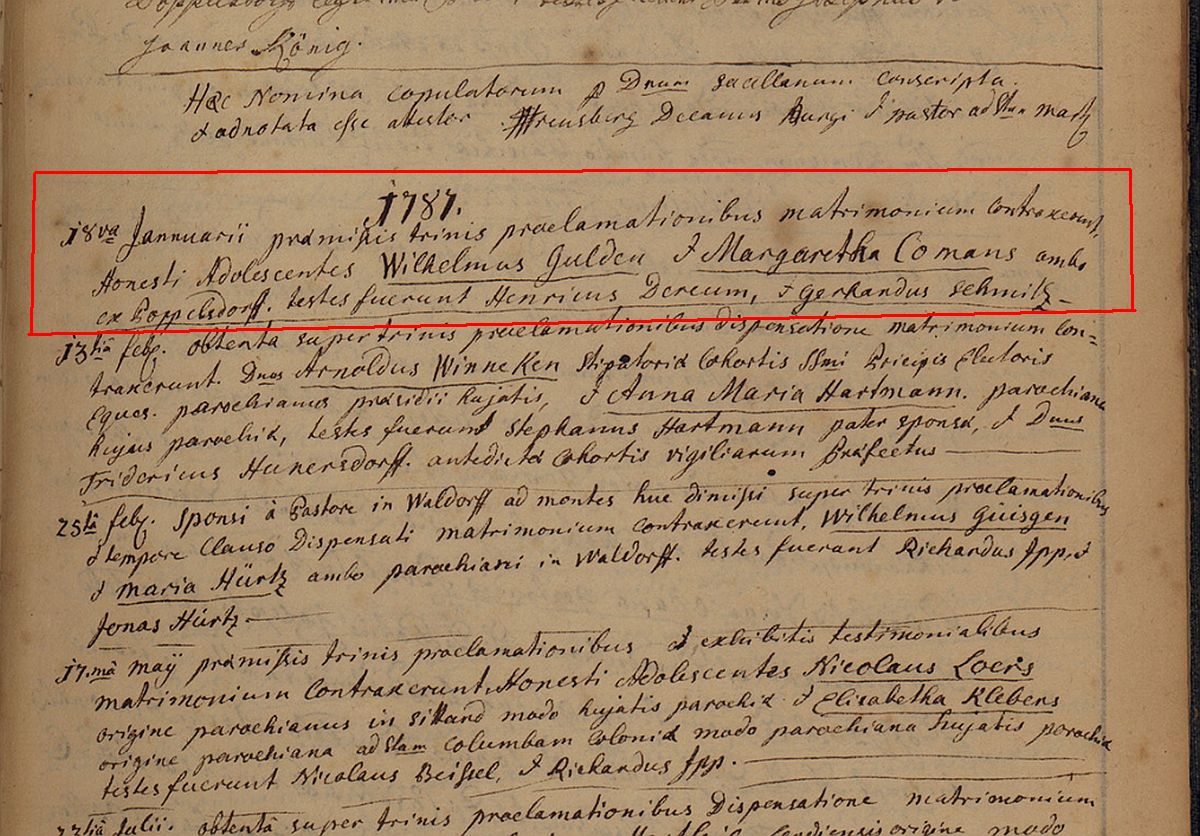 Joannes König.
Hæc Nomina copulatorum p Dnum sacellanum conscripta
& adnotata esse attestor Decanus Burgi & pastor ad Stum Mart
1787.
18va Jannuarii præmissis trinis proclamationibus matrimonium contraxerunt,
Honesti Adolescentes Wilhelmus Gulden & Margaretha Comans ambo
ex Poppelsdorff. testes fuerunt Henricus Dereum, & Gerhardus Schmitz
13tia feb. obtenta super trinis proclamationibus dispensatione matrimonium con=
traxerunt. Dnus Arnoldus Winneken Stipatoriæ Cohortis SSmi Pricipis Electoris
Eques. parochianus præsidii hujatis, & Anna Maria Hartmann. parochiana
hujus parochiæ, testes fuerunt Stephanus Hartmann pater sponsæ, & Dnus
Fridericus Hunersdorff. antedictæ Cohortis vigiliarum Præfectus
25tâ feb. Sponsi à Pastore in Waldorff ad montes huc dimissi super trinis proclamationibus
& tempore Clauso Dispensati matrimonium contraxerunt, Wilhelmus Güisgen
& Maria Hürtz ambo parochiani in Waldorff. testes fuerant Richardus Jpp, &
Jonas Hürtz
17.mâ maÿ præmissis trinis proclamationibus & exhibitis testimonialibus
matrimonium contraxerunt, Honesti Adolescentes Nicolaus Loers
origine parochianus in Sittard modo hujatis parochiæ & Elisabetha Klebens
origine parochiana ad Stam Columbam Coloniæ modo parochiana hujatis parochiæ
testes fuerunt Nicolaus Beissel, & Richardus Jpp.
Julii. obtentâ super trinis proclamationibus Dispensatione matrimonium
origine modo